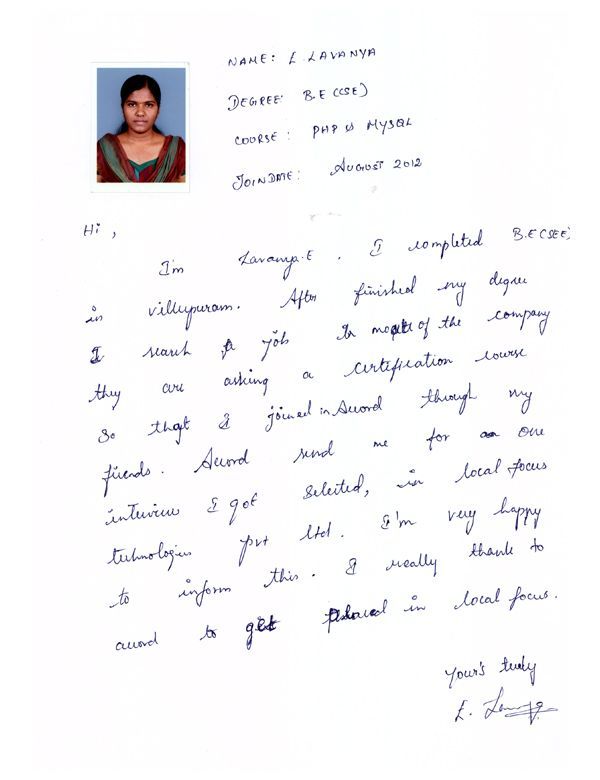 NAME: E. LAVANYA
DEGREE: B.E (CSE)
COURSE: PHP & MYSQL
JOIN DATE: AUGUST 2012
Hi,
I'm Lavanya.E. I completed B.E (CSE)
in villupuram. After finished my degree
I search a job In most of the company
they are asking a certification course
so that I joined in Accord through my
friends. Accord send me for one
interview I got selected, in local focus
technologies pvt ltd. I'm very happy
to inform this. I really thank to
accord to get placed in local focus.
Your's truly
E. Lavanya